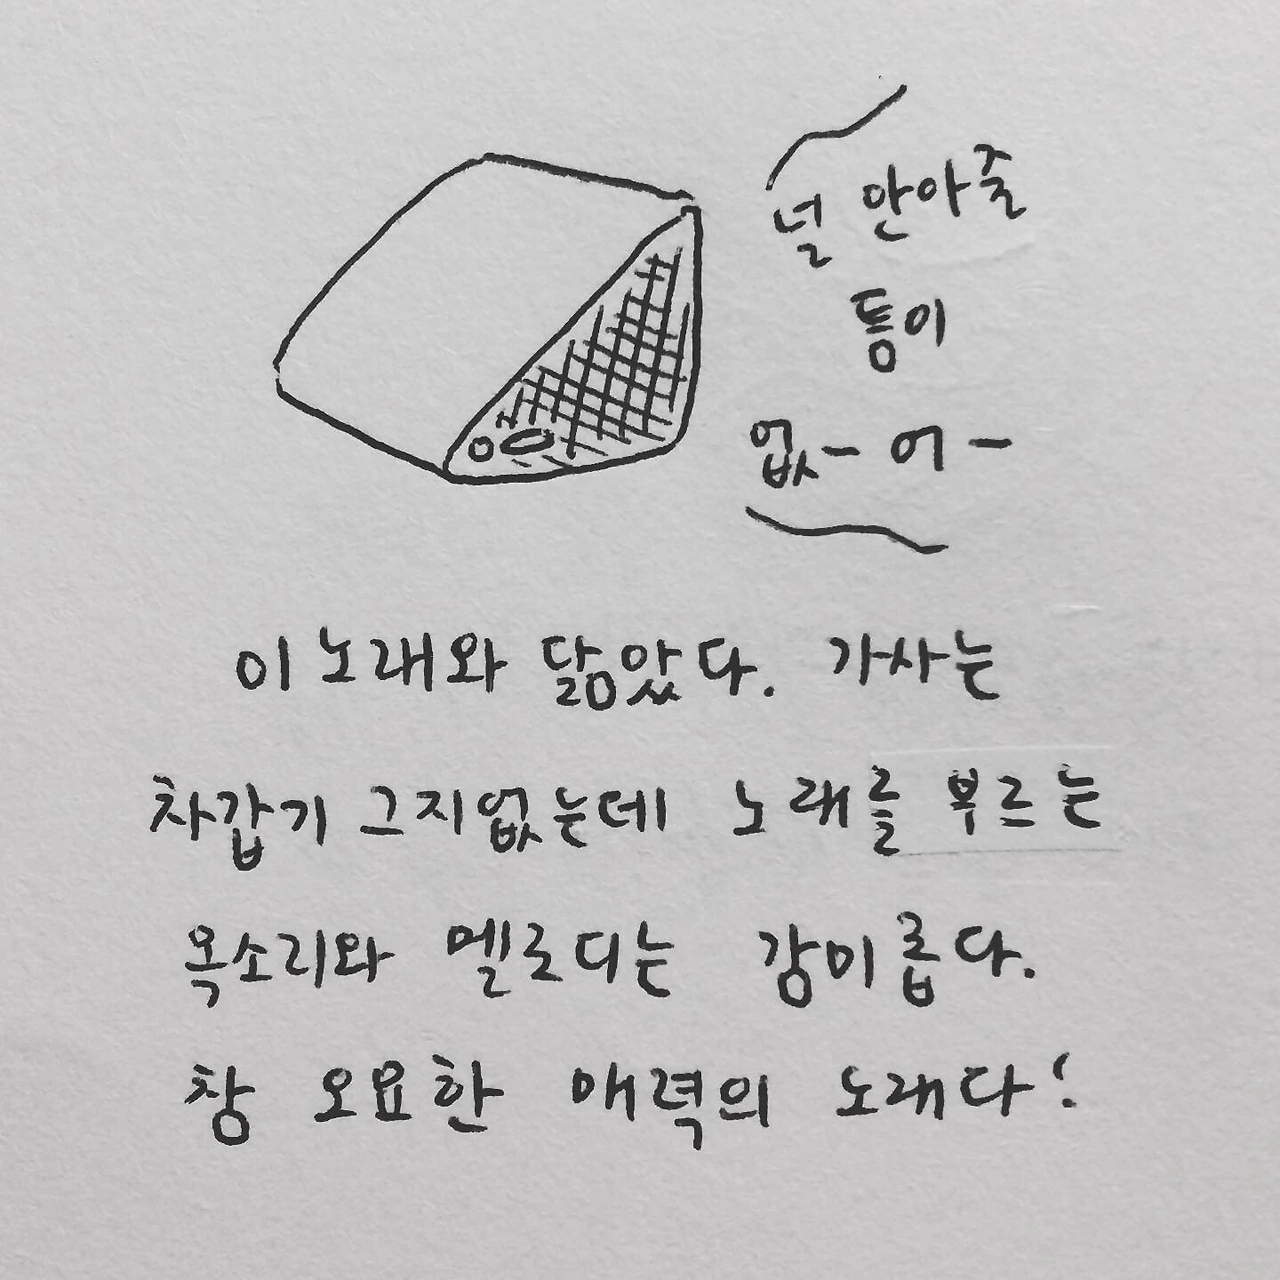 널 안아줄
틈이
없- 어 -
이 노래와 닮았다. 가사는
차갑기 그지없는데 노래를 부르는
목소리와 멜로디는 감미롭다.
참 오묘한 매력의 노래다!